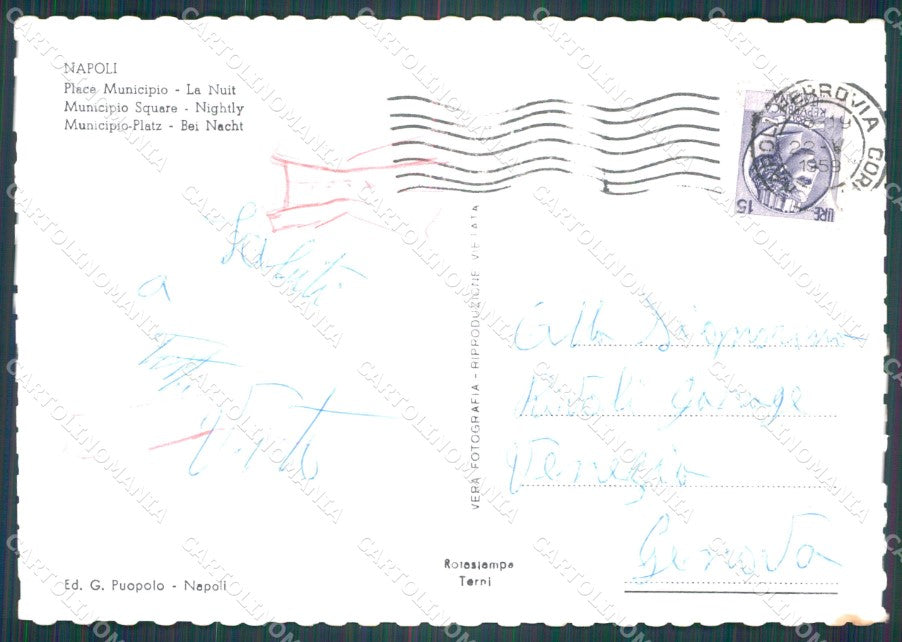 NAPOLI
Place Municipio - La Nuit
Municipio Square - Nightly
Municipio-Platz - Bei Nacht
FERROVIA COR
1958
LIRE 15
Saluti
a
Tutti
VERA FOTOGRAFIA - RIPRODUZIONE VIETATA
Alla
Garage
Venezia
Genova
Ed. G. Puopolo - Napoli
Rotastampa
Terni
CARTOLINOMANIA